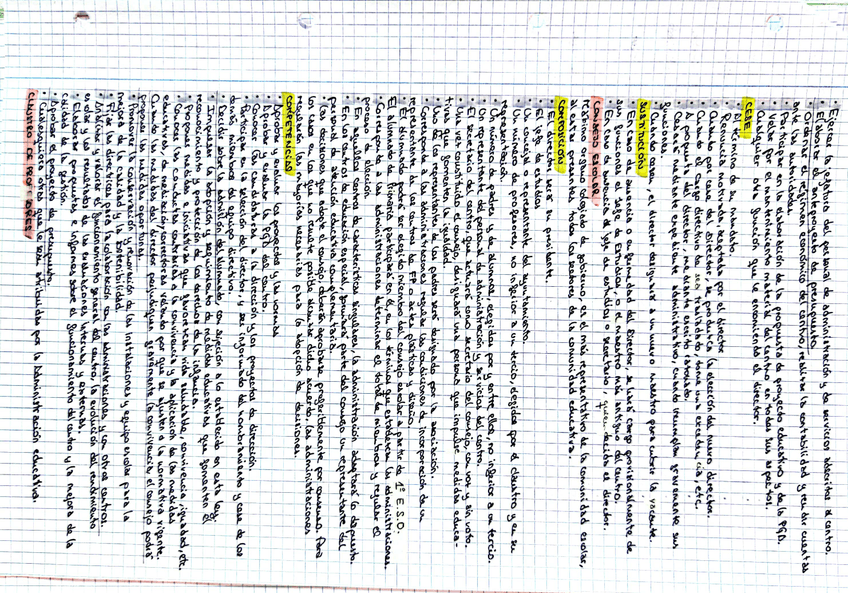 · Ejercer la jefatura del personal de administración y de servicios adscritos al centro.
· Elaborar el anteproyecto de presupuesto.
· Ordenar el régimen económico del centro, realizar la contabilidad y rendir cuentas
ante las autoridades.
· Participar en la elaboración de la propuesta de proyecto educativo y de la PGA.
· Velar por el mantenimiento material del centro en todos sus aspectos.
· Cualquier otra función que le encomiende el director.
CESE
· Al término de su mandato.
· Renuncia motivada aceptada por el director
· Cuando por cese del director se produzca la elección del nuevo director.
· Cuando el cargo directivo deje ser trasladado o tome una excedencia, etc.
· A propuesta del director, mediante escrito razonado.
· Cese mediante expediente administrativo, cuando incumplan gravemente sus
funciones.
· Cuando cese, el director designará a un nuevo maestro para cubrir la vacante.
SUSTITUCIÓN
· En caso de ausencia o enfermedad del director, se hará cargo provisionalmente de
sus funciones el Jefe de Estudios, o el maestro más antiguo del centro.
· En caso de ausencia del jefe de estudios o secretario, quien decida el director.
CONSEJO ESCOLAR
Máximo órgano colegiado de gobierno, es el más representativo de la comunidad escolar,
al estar presentes todos los sectores de la comunidad educativa.
COMPOSICIÓN
· El director será su presidente.
· El jefe de estudios.
· Un concejal o representante del ayuntamiento.
· Un número de profesores, no inferior a un tercio, elegidos por el claustro y en su
representación.
· Un número de padres y de alumnos, elegidos por y entre ellos, no inferior a un tercio.
· Un representante del personal de administración y servicios del centro.
· El secretario del centro, que actuará como secretario del consejo, con voz y sin voto.
· Una vez constituido el consejo, designará una persona que impulse medidas educa-
tivas que fomenten la igualdad.
· Uno de los representantes de los padres será designado por la asociación.
· Corresponde a las administraciones regular las condiciones de incorporación de un
representante de los centros de FP o artes plásticas y diseño.
· El alumnado podrá ser elegido miembro del consejo escolar a partir de 1º E.S.O.
El alumnado de Primaria participará en él, en los términos que establezcan las administraciones.
· Corresponde a las administraciones determinar el total de miembros y regular el
proceso de elección.
· En aquellos centros de características singulares, la administración adaptará lo dispuesto.
· En los centros de educación especial, formará parte del consejo un representante del
personal atención educativa complementaria.
· Las decisiones que adopte el consejo deberán aprobarse preferiblemente por consenso. Para
los casos en los que no resulte posible alcanzar dicho acuerdo, las administraciones
regularán las mayorías necesarias para la adopción de decisiones.
COMPETENCIAS
· Aprobar y evaluar los proyectos y las normas
· Aprobar y evaluar la PGA del centro
· Conocer las candidaturas a la dirección y los proyectos de dirección.
· Participar en la selección del director, y ser informado del nombramiento y cese de los
demás miembros del equipo directivo.
· Decidir sobre la admisión del alumnado, con sujeción a lo establecido en esta ley.
· Impulsar la adopción y seguimiento de medidas educativas que fomenten el
reconocimiento y protección de los derechos de la infancia.
· Proponer medidas e iniciativas que favorezcan vida saludable, convivencia, igualdad, etc.
· Conocer las conductas contrarias a la convivencia y la aplicación de las medidas
educativas, de mediación, correctoras velando por que se ajusten a la normativa vigente.
Cuando las medidas del director perjudiquen gravemente la convivencia, el consejo podrá
proponer las medidas oportunas.
· Promover la conservación y renovación de las instalaciones y equipo escolar para la
mejora de la calidad y la sostenibilidad.
· Fijar las directrices para la colaboración con las administraciones, y con otros centros.
· Analizar y valorar el funcionamiento general del centro, la evolución del rendimiento
escolar y los resultados de las evaluaciones internas y externas.
· Elaborar propuestas e informes sobre el funcionamiento del centro y la mejora de la
calidad de la gestión.
· Aprobar el proyecto de presupuesto.
· Cualesquiera otras que le sean atribuidas por la administración educativa.
CLAUSTRO DE PROFESORES